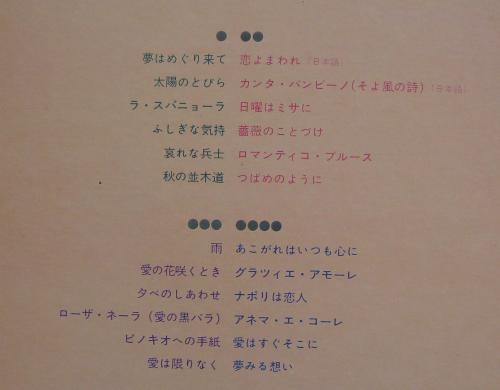 夢はめぐり来て 恋よまわれ（日本語）
太陽のとびら カンタ・バンビーノ(そよ風の詩)（日本語）
ラ・スパニョーラ 日曜はミサに
ふしぎな気持 薔薇のことづけ
哀れな兵士 ロマンティコ・ブルース
秋の並木道 つばめのように
雨 あこがれはいつも心に
愛の花咲くとき グラツィエ・アモーレ
夕べのしあわせ ナポリは恋人
ローザ・ネーラ（愛の黒バラ） アネマ・エ・コーレ
ピノキオへの手紙 愛はすぐそこに
愛は限りなく 夢みる想い